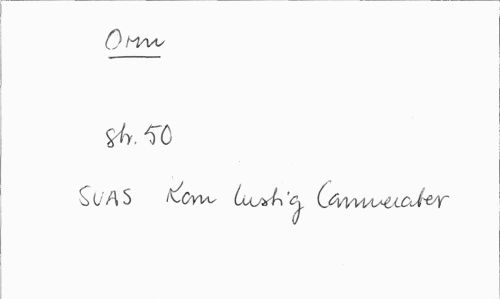 Orm
str. 50
SUAS Kom lustig Cammerater